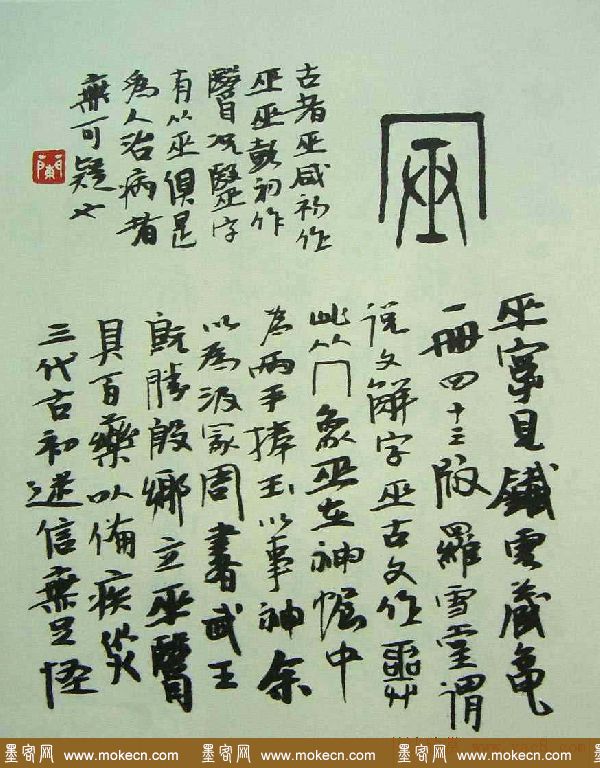 古者巫咸初作
巫巫彭初作
醫自況毉字
有从巫俱是
為人治病者
無可疑也
巫字見鐵雲藏龜
一冊四十三版羅雪堂謂
説文解字巫古文作𢍮
此从冂象巫在神幄中
為兩手捧玉以事神余
以為汲冢周書武王
既勝殷鄉立巫醫
具百藥以備疾災
三代古初迷信無足怪
墨客网 www.mokecn.com 墨客网 www.mokecn.com 墨客网 www.mokecn.com